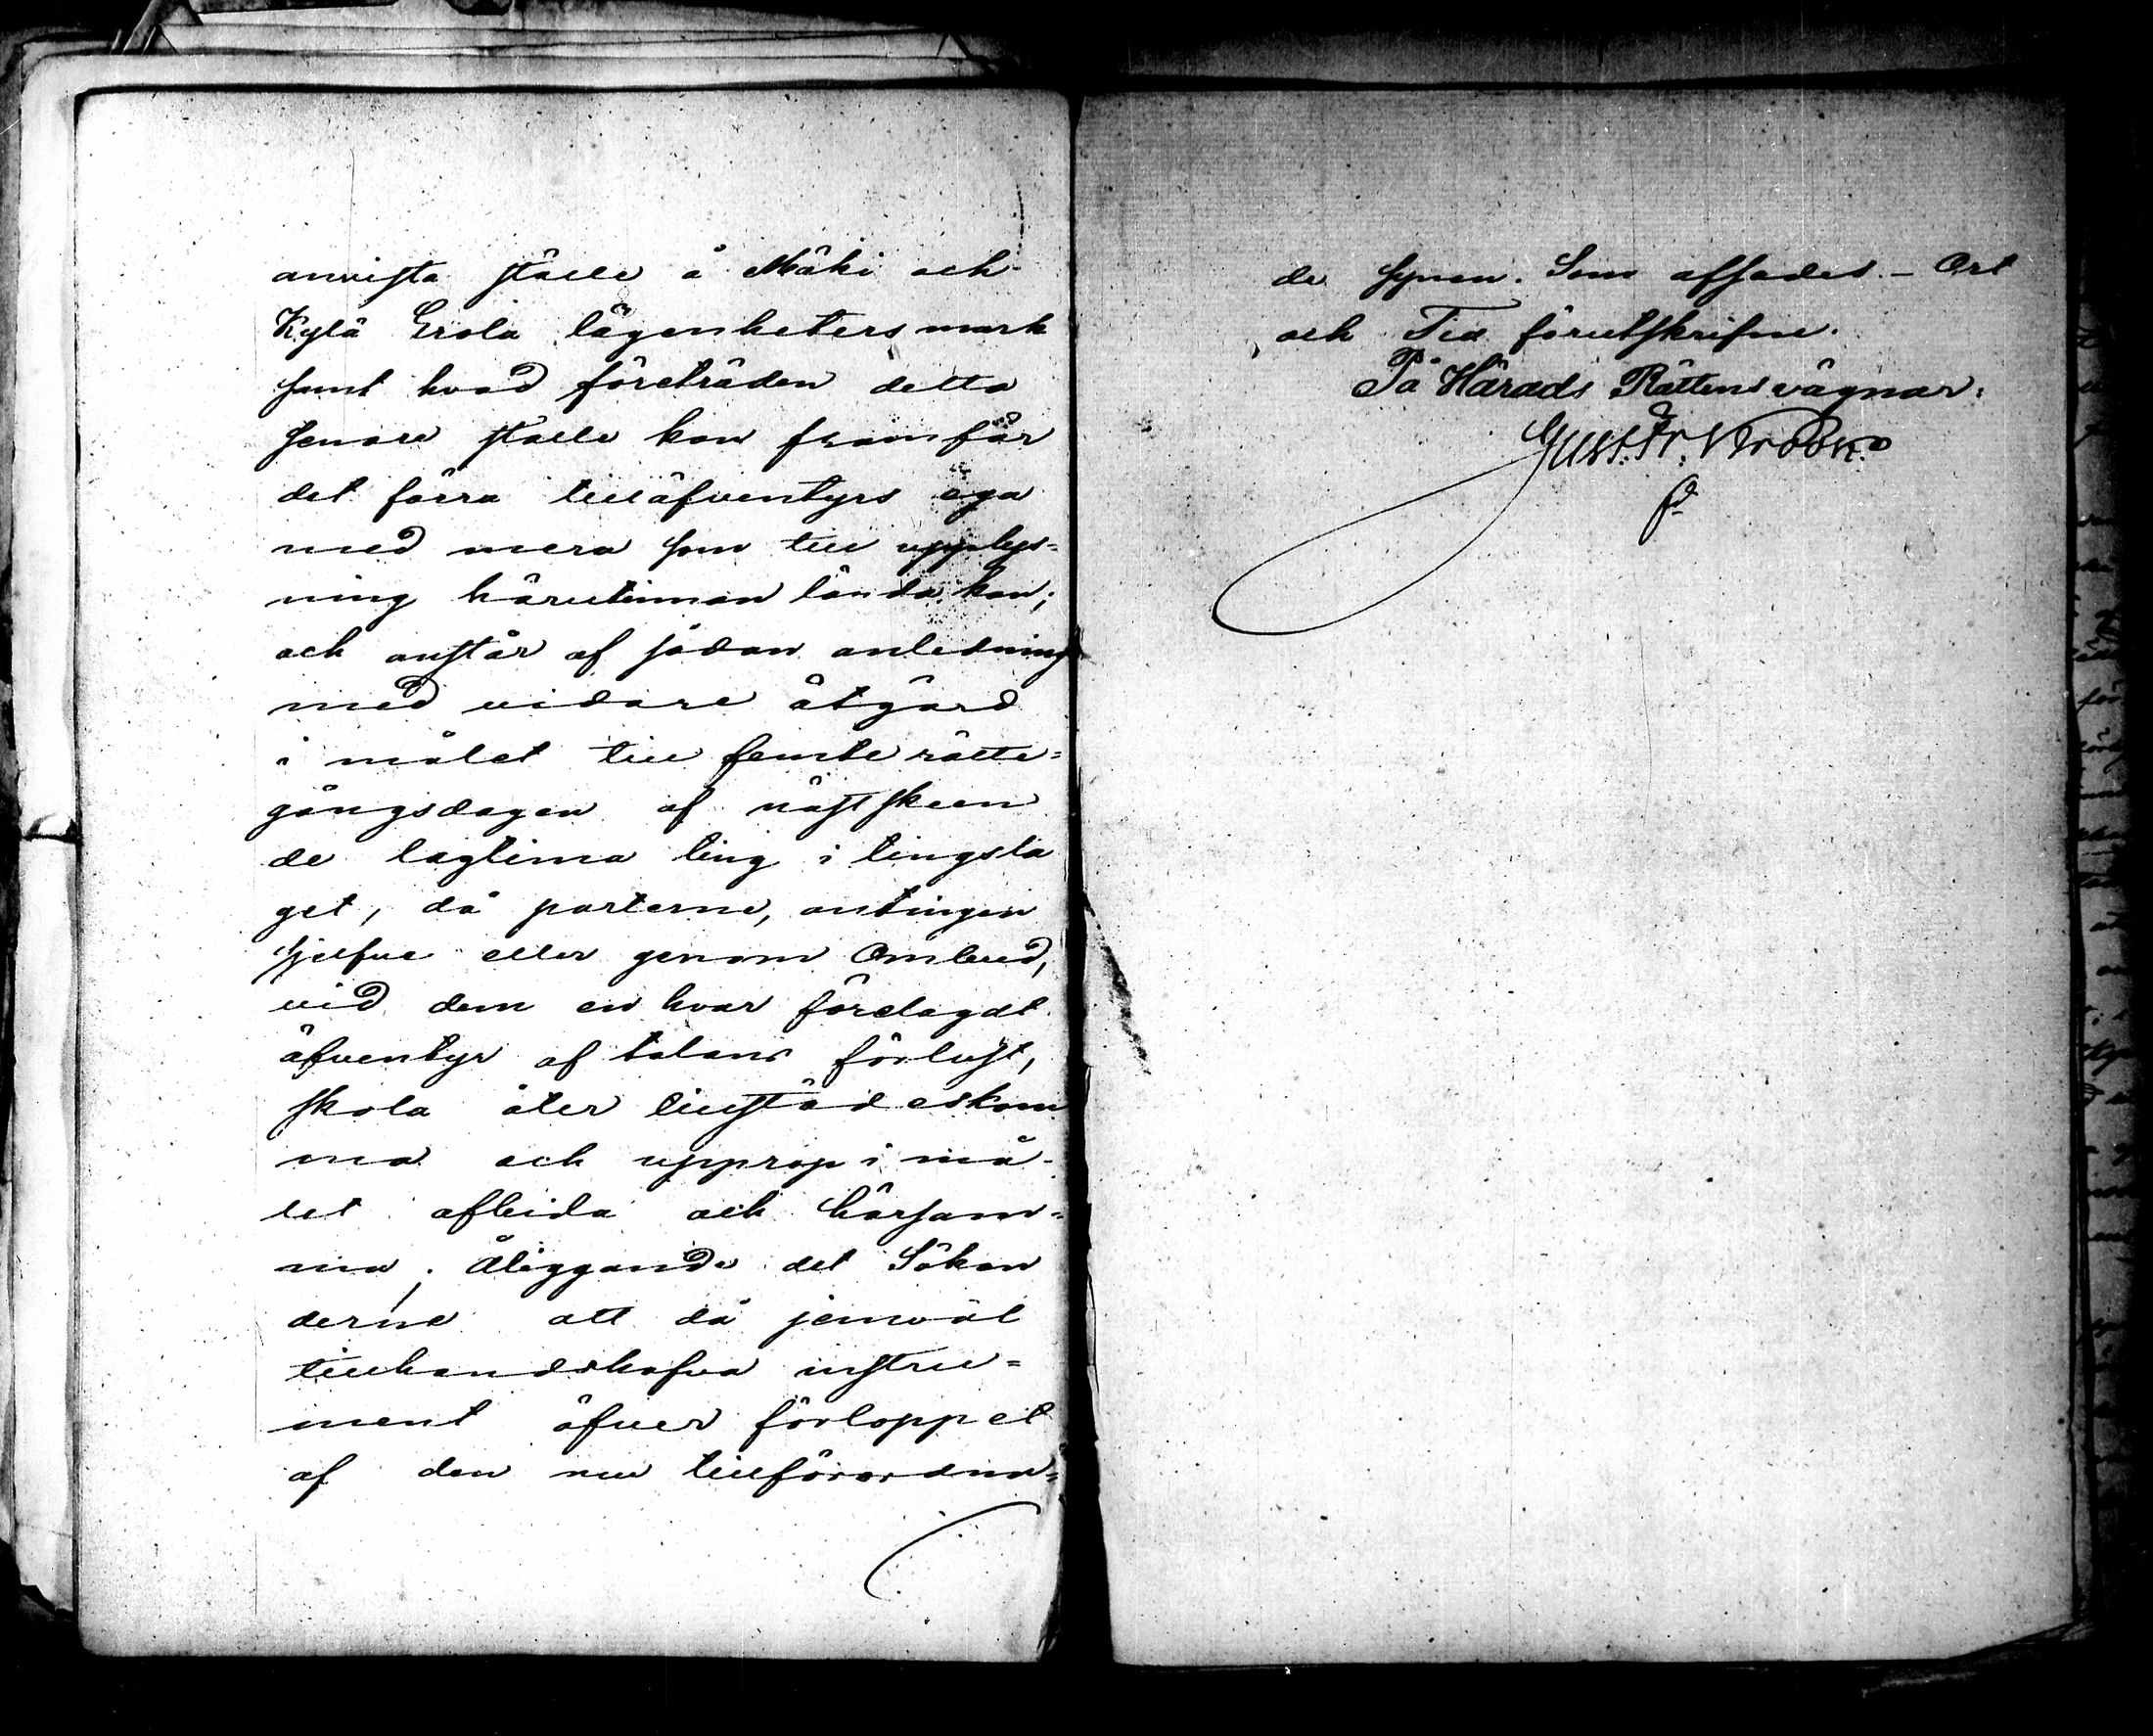 anvista ställe å Mäki och
Kylä Erola lägenheters mark
samt hvad företräden detta
senare ställe kan framför
det förra tilläfventyrs ega
med mera som till upplys=
ning härutinnan lända kan;
och anstår af sådan anledning
med vidare åtgärd
i målet till femte rätte=
gångsdagen af nästskeen
de lagtima ting i tingsla
get, då parterne, antingen
sjelfve eller genom Ombud,
vid dem en hvar förelagdt
äfventyr af talans förlust,
skola åter tillstädeskom
ma och upprop i må-
let afbida och hörsam=
ma; Åliggande det Sökan
derne att då jemväl
tillhandahafva instru=
ment öfver förloppet
af den nu tillförordna=
de synen. Som afsades. – Ort
och Tid förutskrifne.
På Härads Rättens vägnar:
Gust. Fr.